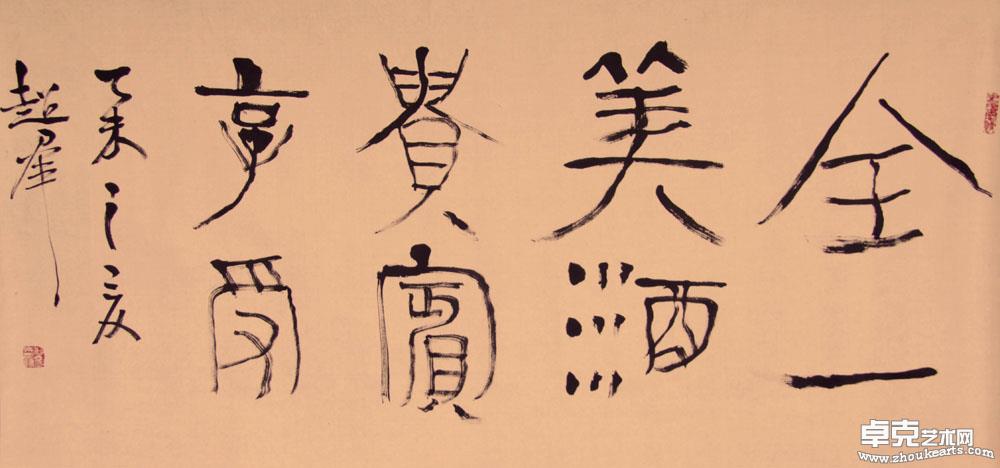 全一
美酒
貴賓
享受
乙未之夏
超群
卓克艺术网
www.zhoukearts.com